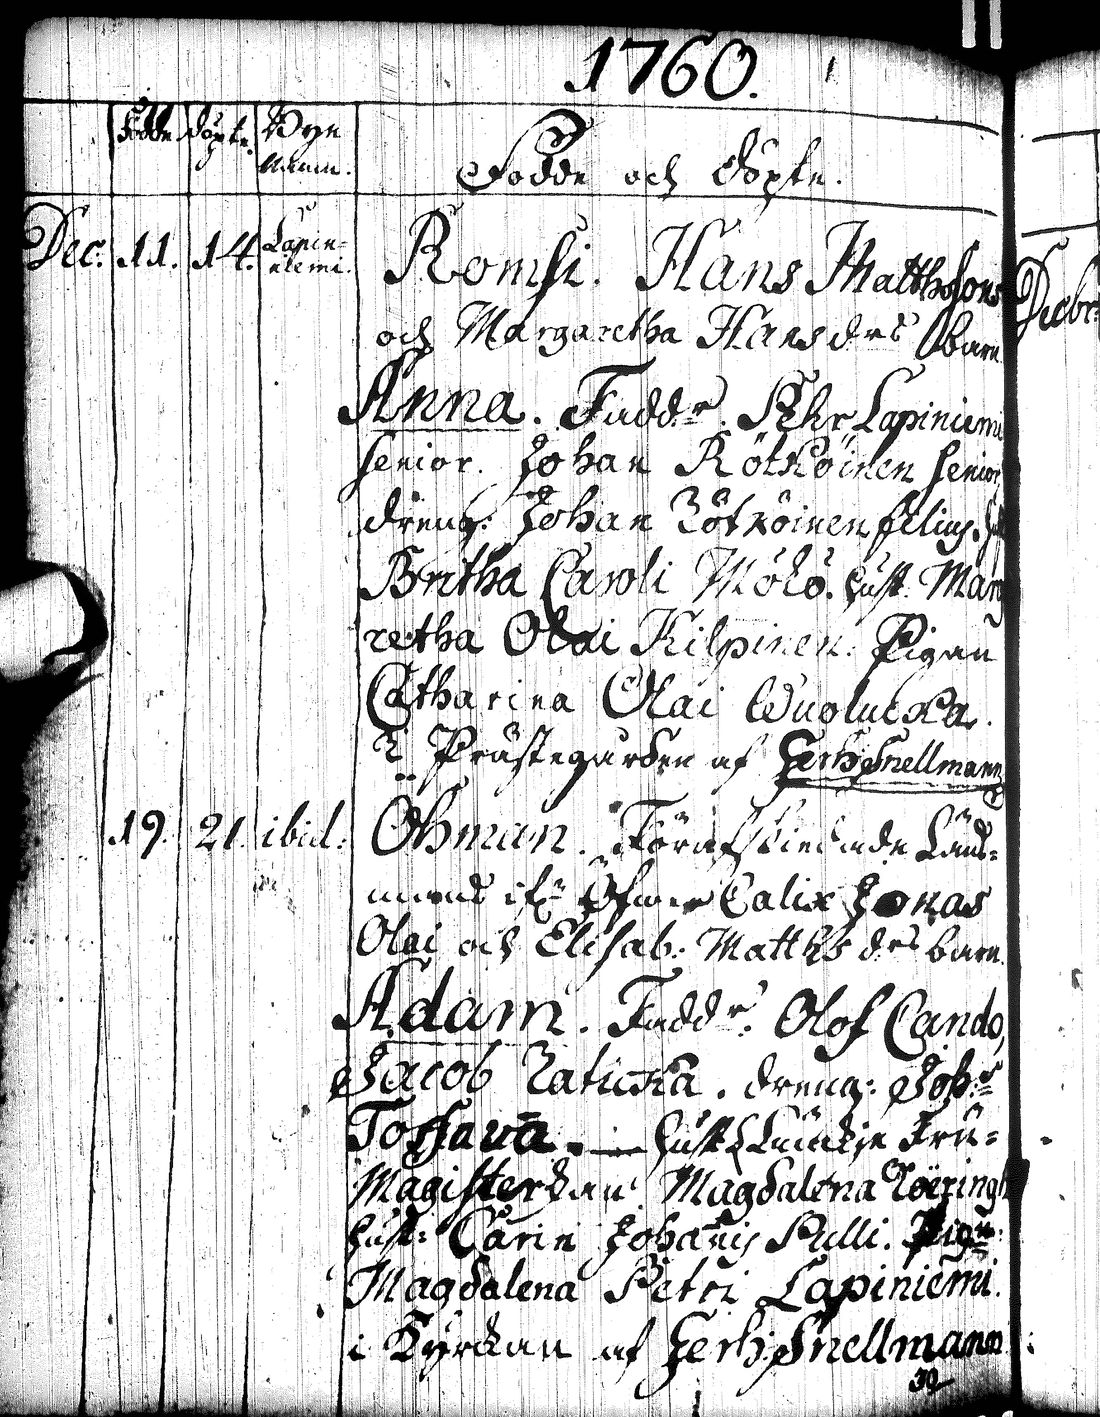 1760.
Födde Döpte. Byn
Namn.
Födde och Döpte.
Dec. 11. 14. Lapin-
niemi.
Romsi. Hans Matthssons
och Margaretha Hansdrs barn
Anna. Faddr. Pehr Lapiniemi
senior. Johan Rötköinen senior,
dreng: Johan Rötköinen filius.
Britha Caroli Mökö. hust. Mar
retha Olai Kilpinen. Pigan
Catharina Olai Wuolucka.
i Prästegården af Gerh: Snellmann
19. 21. ibid: Öhman. Förafskiedade Läns-
mans ifr Öfwer Calix Jonas
Olai och Elisab: Matths drs barn
Adam. Faddr. Olof Cando,
Jacob Raticka. dreng: Joh:
Tossava. hust Fru-
Magisterskan Magdalena
hust: Carin Johanis Pulli. Pigan
Magdalena Petri Lapiniemi.
i Kyrckan af Gerh: Snellmann
Decbr: